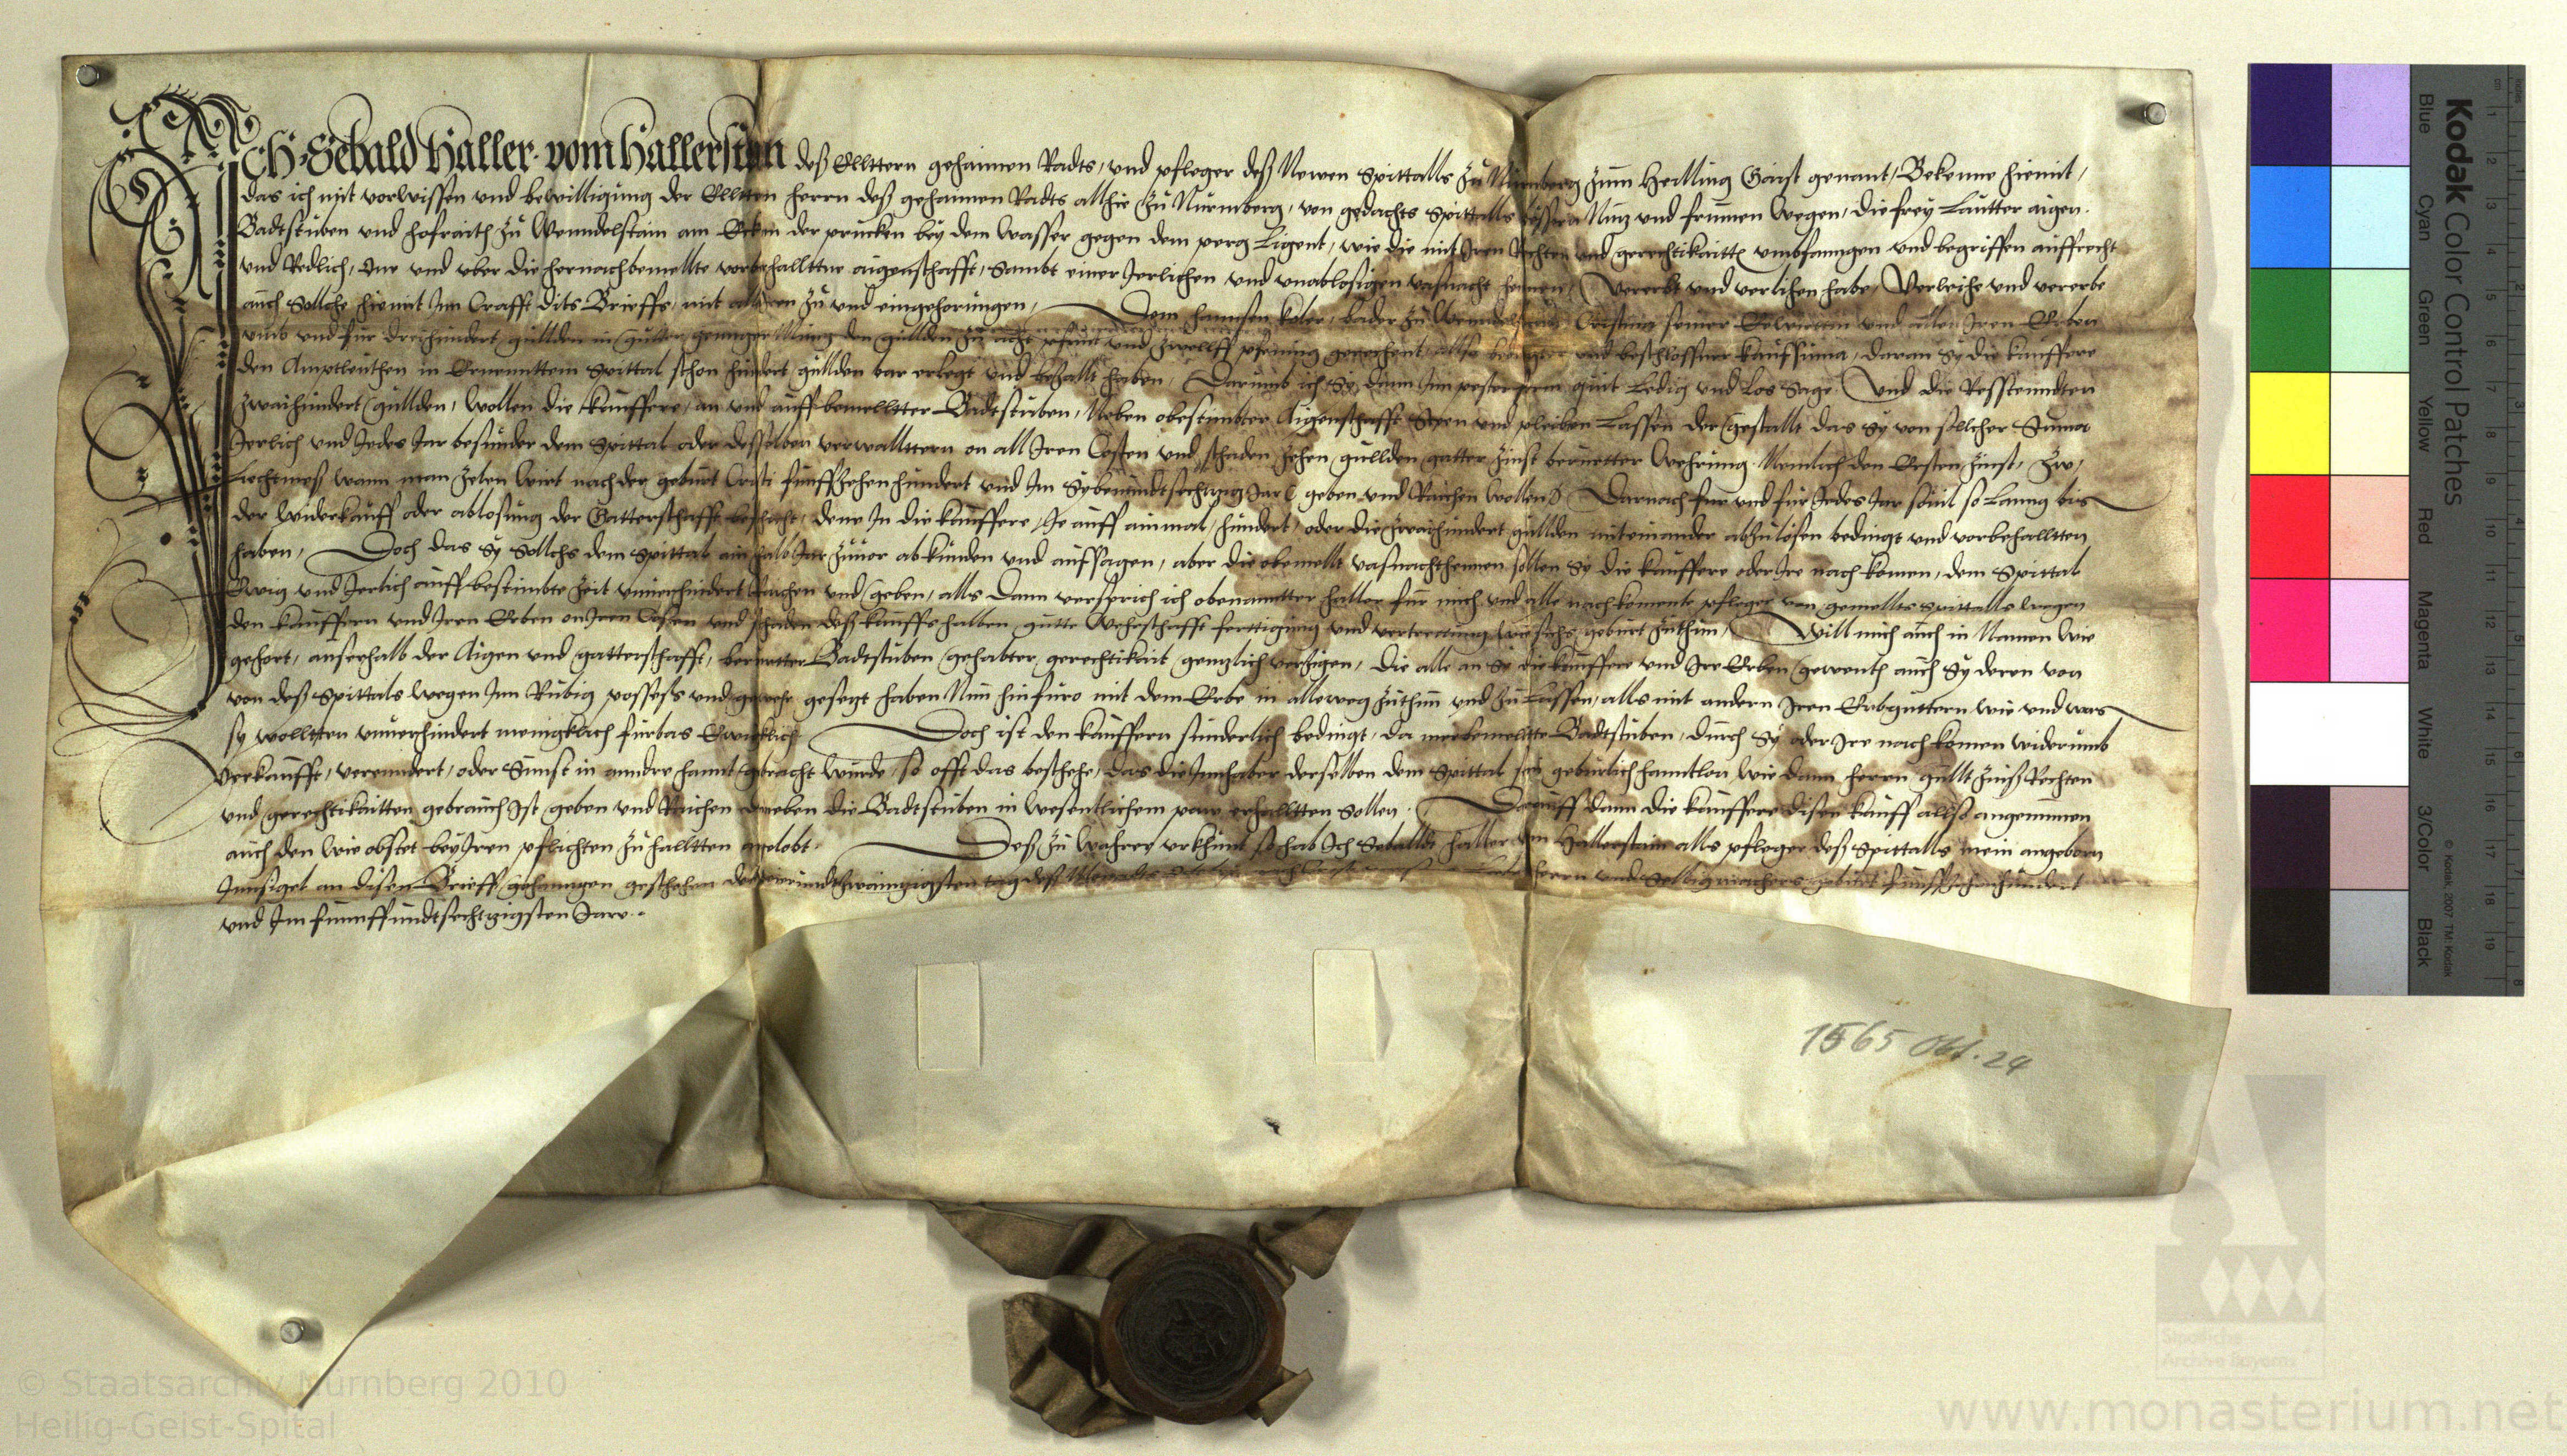 ICH Sebald Haller vom Hallerstain deß Ellttern gehaimen Radts, und pfleger deß Newen Spittalls zu Nürmberg zum Heilling Gaist genant, Bekenne hiemit,
das ich mit vorwissen und bewilligung der Elltten herrn deß gehaimen Radts allhie zu Nürmberg, von gedachts Spittalls pessern Nuz und frummen wegen, die frey Lautter aigen
Badtstuben und hofraith zu Wenndelstain am Eckh der prucken bey dem Wasser gegen dem perg Ligent, wie die mit Iren Rechten und gerechtikaitten umbfanngen und begriffen auffrecht
und Redlich, Inn und uber die hernachbemellte vorbehallttne aigenschafft, Sambt einer Jerlichen und unablosigen vasnacht hennen, Vererbt und verlihen habe, Verleihe und vererbe
auch Sollche hiemit Inn Crafft dits Brieffs, mit allen zu und eingehorungen, Dem hannsen koler, bader zu Wenndelstain Cristina seiner Eewirttin und allen Iren Erben
umb und fur dreihundert gullden in gutter geringer Muntz den gullden zu acht pfunt und zwellff pfening gerechent, allso bedingter und beschlossner kauffsuma, daran Sy die kauffere
den Amptleuthen in Ernenntem Spittal schon hundert gullden bar erlegt und bezallt haben, Darumb ich Sy dann Inn pester form quit Ledig und Los Sage, Und die Resstenndten
zwaihundert gullden, wollen die kauffere, an und auff bemellter Badtstuben, Neben obestimbter Aigenschafft Steen und pleiben Lassen der gestallt das Sy von sollcher Suma
Jerlich und Jedes Jar besunder dem Spittal oder desselben verwallttern on all Iren Costen und schaden zehen gullden gatter zinst berurtter Wehrung Nemlich den Ersten zinst, zw,
Liechtmeß wann man zelen wirt nach der geburt Cristi funffzehenhundert und Im Sybenundtsechtzig Jar, geben und Raichen wollen, Darnach fur und fur Jedes Jar souil so Lanng bis
der widerkauff oder ablosung der Gatterschafft beschicht, denn In die kauffere, Je auff ainmal, hundert, oder die zwaihundert gullden miteinander abzulosen bedingt und vorbehalltten
haben, Doch das Sy Sollchs dem Spittal ain halb Jar zuuor abkunden und auffsagen, aber die obemellt vasnachthennen sollen Sy die kauffere oder Ire nachkomen, dem Spittal
Ewig und Jerlich auff bestimbte zeit unuerhindert Raichen und geben, alls Dann versprich ich obenanntter haller fur mich und alle nachkomente pfleger von gemellts Spittalls wegen
den kauffern und Iren Erben on Iren Costen und schaden deß kauffs halben gutte Wehrschafft fertigung und vertrettung wie sichs geburt zuthun, Will mich auch in Namen wie
gehort, ausserhalb der Aigen und gatterschafft, berurtter Badtstuben gehabter gerechtikait genzlich verzigen, Die alle an Sy die kauffere und Ire Erben gewent, auch Sy deren von
von deß Spittals wegen Inn Rubig possess und gewehr gesezt haben Nun hinfuro mit dem Erbe in alleweg zuthun und zu Lassen, alls mit andern Iren Erbguttern wie und was
sy wolltten unuerhindert menigklich furbas Ewigklich Doch ist den kauffern sunderlich bedingt, da merbemelltte Badtstuben, durch Sy oder Ire nachkomen widerumb
verkaufft, verenndert, oder Sunst in anndre hannt gebracht wurde, so offt das beschehe, das die Innhaber derselben dem Spittal sein geburlich hanntlon wie dann herrn gullt zinß Rechten
und gerechtikaitten gebrauch Ist, geben und Raichen darneben die Badtstuben in wesentlichem paw erhalltten sollen. Darauff dann die kauffere disen kauff allso angenummen
auch den wie obstet bey Iren pflichten zu halltten angelobt. Deß zu Wahren urkhunt so hab Ich Seballdt haller vom Hallerstain alls pfleger deß Spittalls mein angeborn
Innsigel an disen Brieff gehanngen geschehen den vierundtzwaintzigsten tag deß Monats herrn und Seligmachers geburt funffzehenhundert
und Im funnffundtsechtzigsten Jare.
1565 Okt. 24
Kodak Color Control Patches
Blue Cyan Green Yellow Red Magenta White 3/Color Black
© Kodak, 2007 TM: Kodak
© Staatsarchiv Nürnberg 2010
Heilig-Geist-Spital
Staatliche
Archive Bayerns
www.monasterium.net